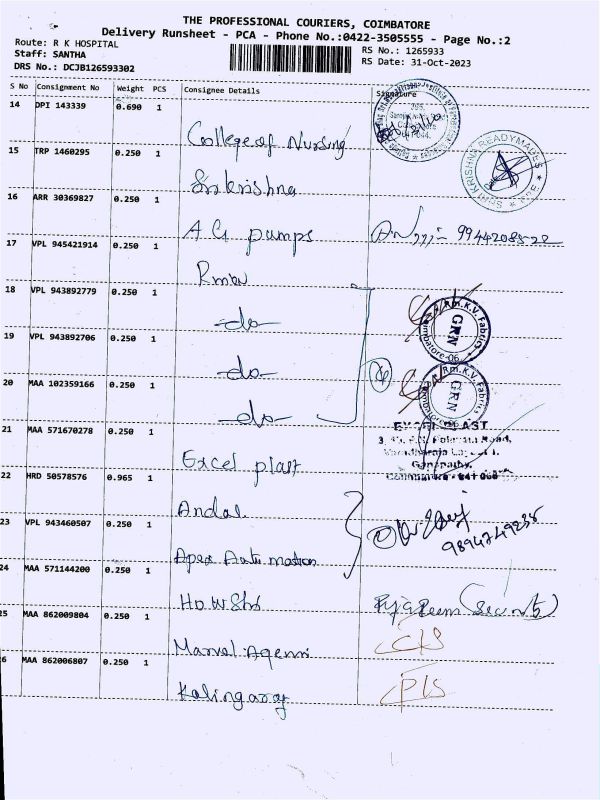 THE PROFESSIONAL COURIERS, COIMBATORE
Delivery Runsheet - PCA - Phone No.:0422-3505555 - Page No.:2
Route: R K HOSPITAL
Staff: SANTHA
DRS No.: DCJB126593302
RS No.: 1265933
RS Date: 31-Oct-2023
S No Consignment No Weight PCS Consignee Details Signature
14 DPI 143339 0.690 1
College of Nursing
15 TRP 1460295 0.250 1
Sri krishna
SHRI KRISHNA READYMADES
16 ARR 30369827 0.250 1
A G pumps
17 VPL 945421914 0.250 1
Rmkv
18 VPL 943892779 0.250 1
-do-
Rm.K.V. Fabrics
GRN
Coimbatore-06
19 VPL 943892706 0.250 1
-do-
4
Rm.K.V. Fabrics
GRN
20 MAA 102359166 0.250 1
-do-
21 MAA 571670278 0.250 1
Excel plast
Road,
Ganapathy,
22 HRD 50578576 0.965 1
Andal
23 VPL 943460507 0.250 1
Apex Automation
24 MAA 571144200 0.250 1
(Security)
25 MAA 862009804 0.250 1
Marvel Agenci
26 MAA 862006807 0.250 1
Kalingaray